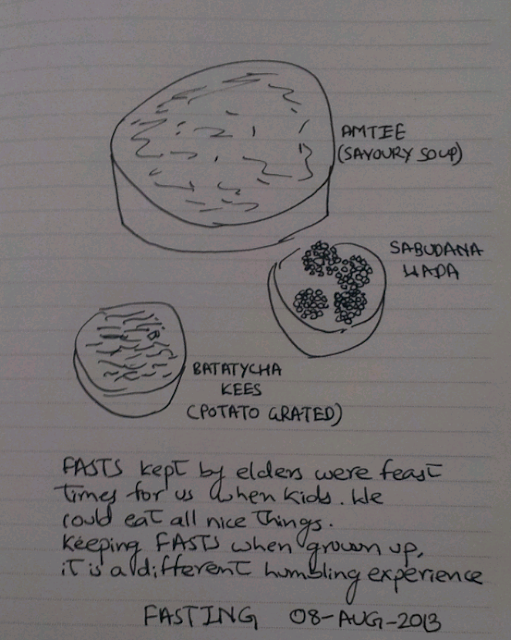 AMTIEE
(SAVOURY SOUP)
SABUDANA
WADA
BATATYCHA
KEES
(POTATO GRATED)
FASTS kept by elders were feast
times for us when kids. We
could eat all nice things.
Keeping FASTS when grown up,
it is a different humbling experience
FASTING 08-AUG-2013